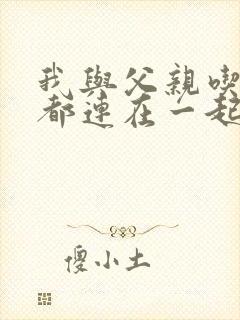 我與父親喫
都連在一起
傻小土